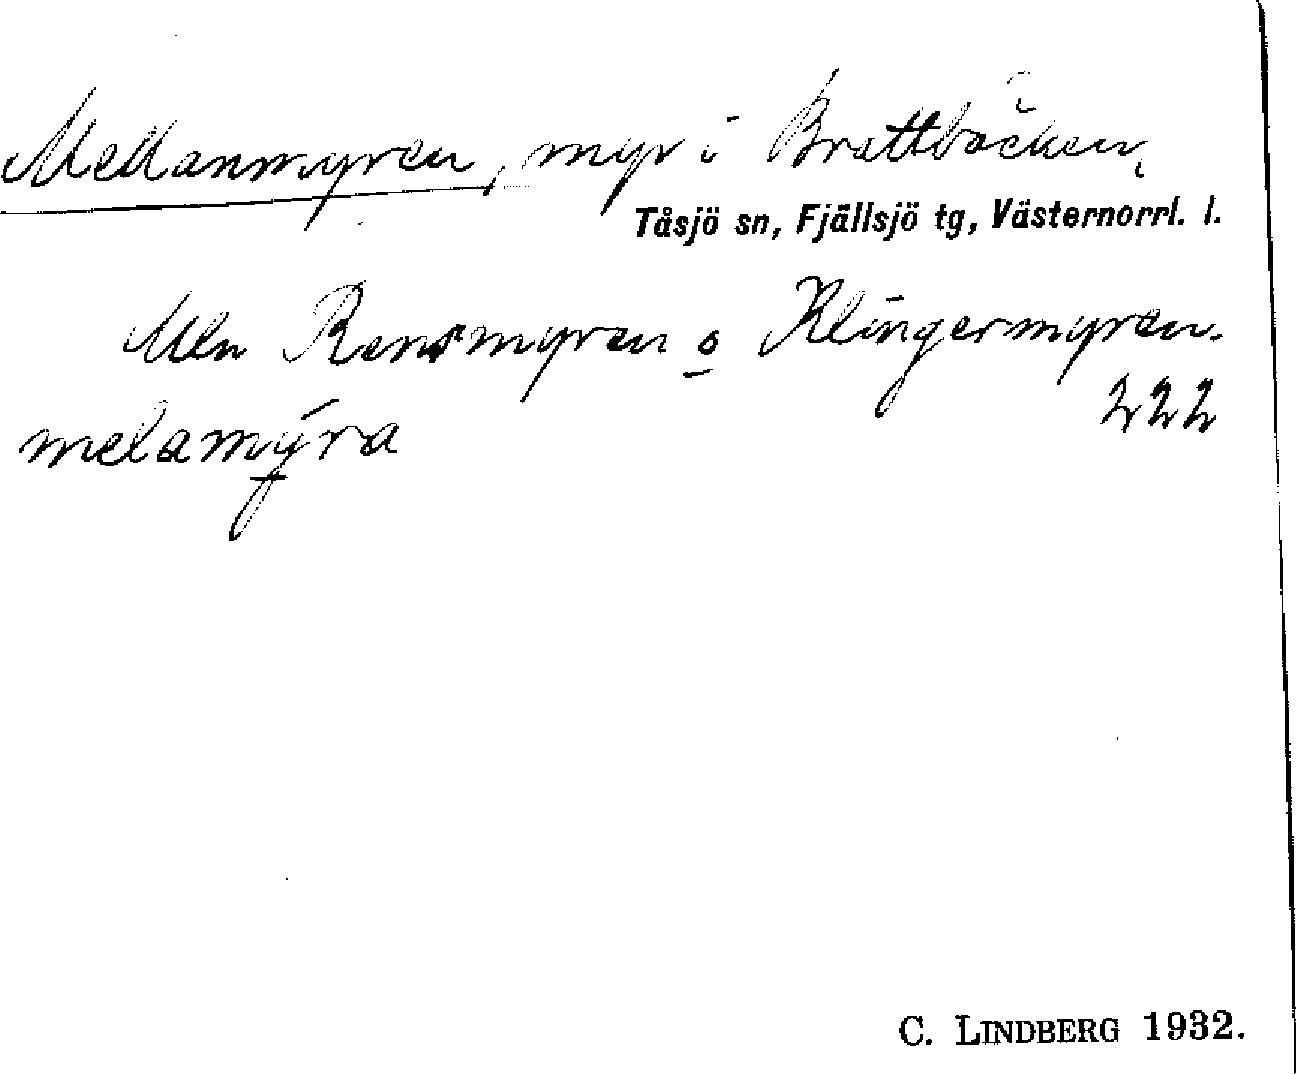 Mellanmyren, myr i Brattbäcken,
Tåsjö sn, Fjällsjö tg, Västernorrl. l.
Mln Rensmyren o Klingermyren.
222
melamýra
C. LINDBERG 1932.